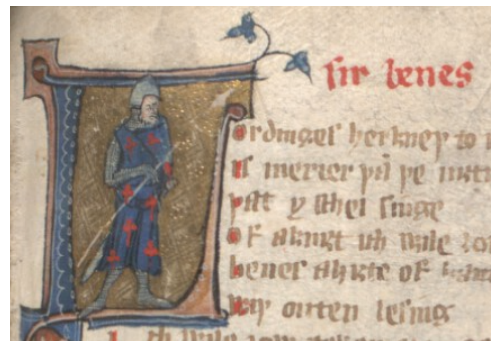 sir beues
Lordinges herkneþ to
is merier þan þe niȝti
þat y schel singe
Of a kniȝt ich wile ȝow
beues a hiȝte of ham
wiþ outen lesing
Ich wile ȝow tellen